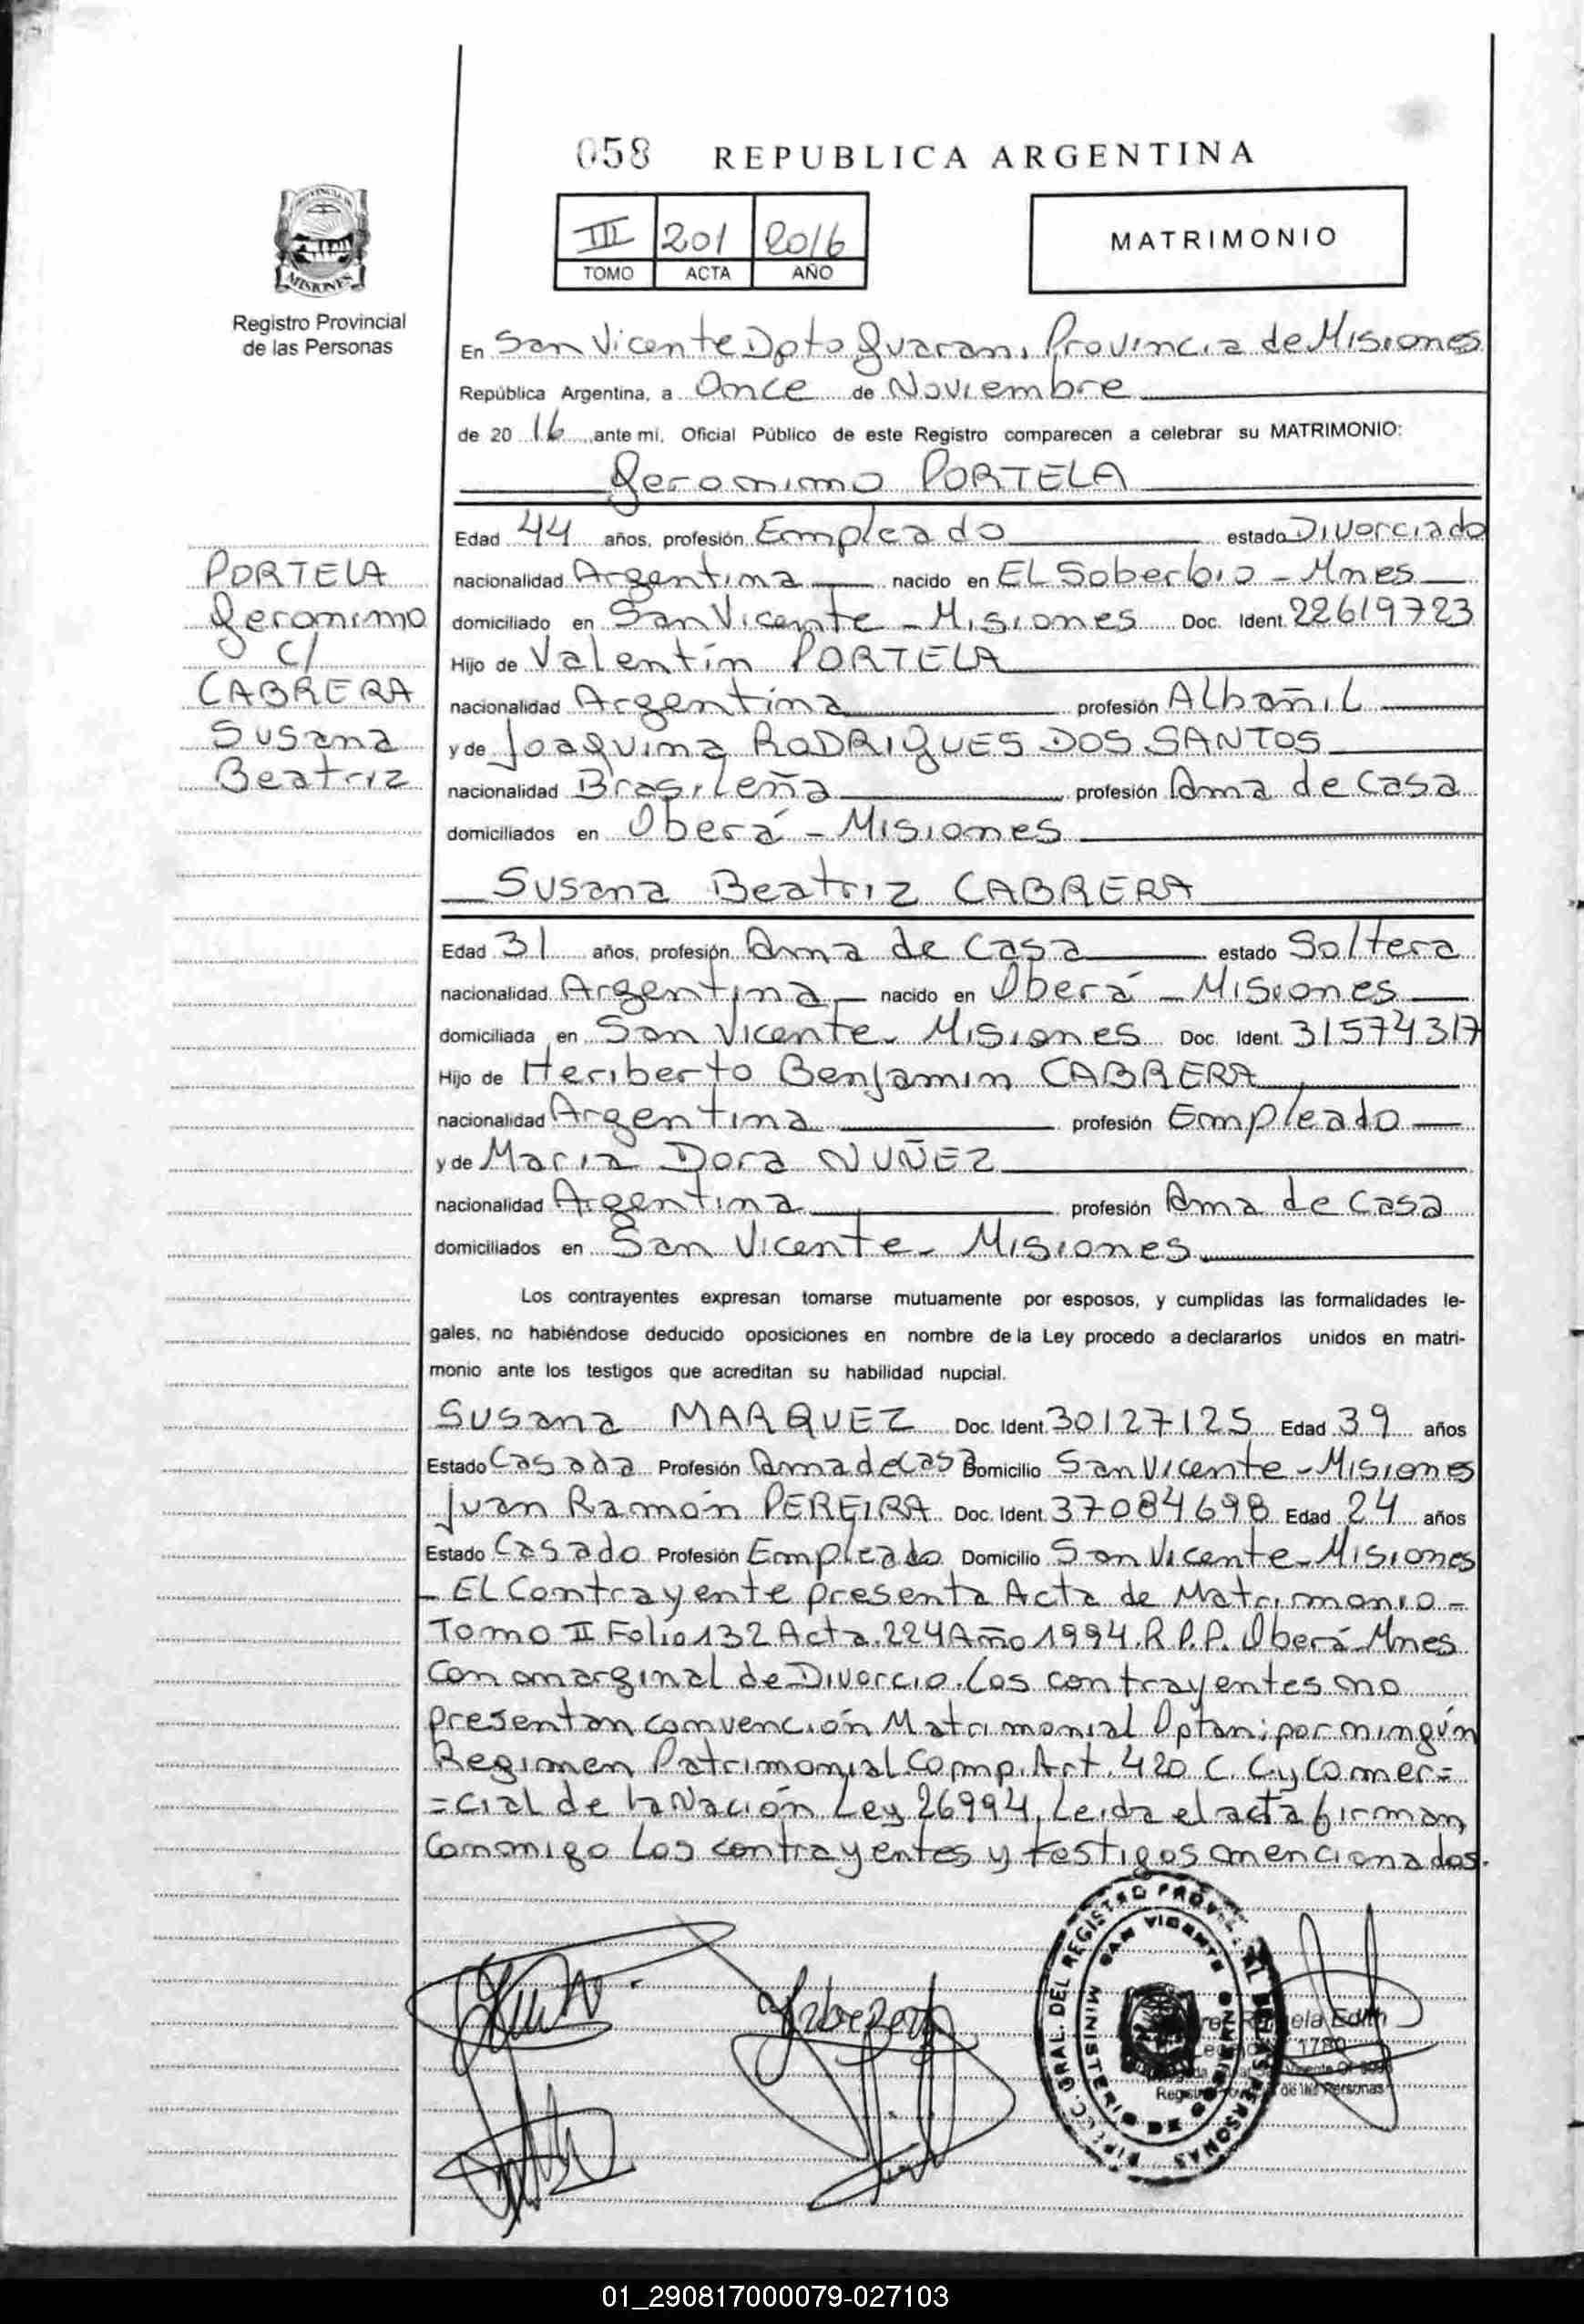 058 REPUBLICA ARGENTINA
III 201 2016
TOMO ACTA AÑO
MATRIMONIO
MISIONES
Registro Provincial
de las Personas
En San Vicente Dpto Guarani, Provincia de Misiones
República Argentina, a Once de Noviembre
de 20 16 ante mi, Oficial Público de este Registro comparecen a celebrar su MATRIMONIO:
Geronimo PORTELA
Edad 44 años, profesión Empleado estado Divorciado
nacionalidad Argentina nacido en EL Soberbio - Mnes
domiciliado en San Vicente - Misiones Doc. Ident. 22619723
Hijo de Valentín PORTELA
nacionalidad Argentina profesión Albañil
y de Joaquima RODRIGUES DOS SANTOS
nacionalidad Brasileña profesión Ama de Casa
domiciliados en Oberá - Misiones
PORTELA
Geronimo
c/
CABRERA
Susana
Beatriz
Susana Beatriz CABRERA
Edad 31 años, profesión Ama de Casa estado Soltera
nacionalidad Argentina nacido en Oberá - Misiones
domiciliada en San Vicente - Misiones Doc. Ident. 31574317
Hijo de Heriberto Benjamin CABRERA
nacionalidad Argentina profesión Empleado
y de Maria Dora NUÑEZ
nacionalidad Argentina profesión Ama de Casa
domiciliados en San Vicente - Misiones
Los contrayentes expresan tomarse mutuamente por esposos, y cumplidas las formalidades le-
gales, no habiéndose deducido oposiciones en nombre de la Ley procedo a declararlos unidos en matri-
monio ante los testigos que acreditan su habilidad nupcial.
Susana MARQUEZ Doc. Ident. 30127125 Edad 39 años
Estado Casada Profesión Ama de Casa Domicilio San Vicente - Misiones
Juan Ramón PEREIRA Doc. Ident. 37084698 Edad 24 años
Estado Casado Profesión Empleado Domicilio San Vicente - Misiones
- EL Contrayente presenta Acta de Matrimonio -
Tomo II Folio 132 Acta 224 Año 1994. R.P.P. Oberá - Mnes
con marginal de Divorcio. Los contrayentes no
presentan convención Matrimonial Optan: por ningún
Regimen Patrimonial comp. Art. 420 C. C. y Comer=
=cial de la Nación Ley 26994, Leida el acta firman
conmigo Los contrayentes y testigos mencionados.
DEL REGISTRO
SAN VICENTE
Edith
de las Personas
01_290817000079-027103